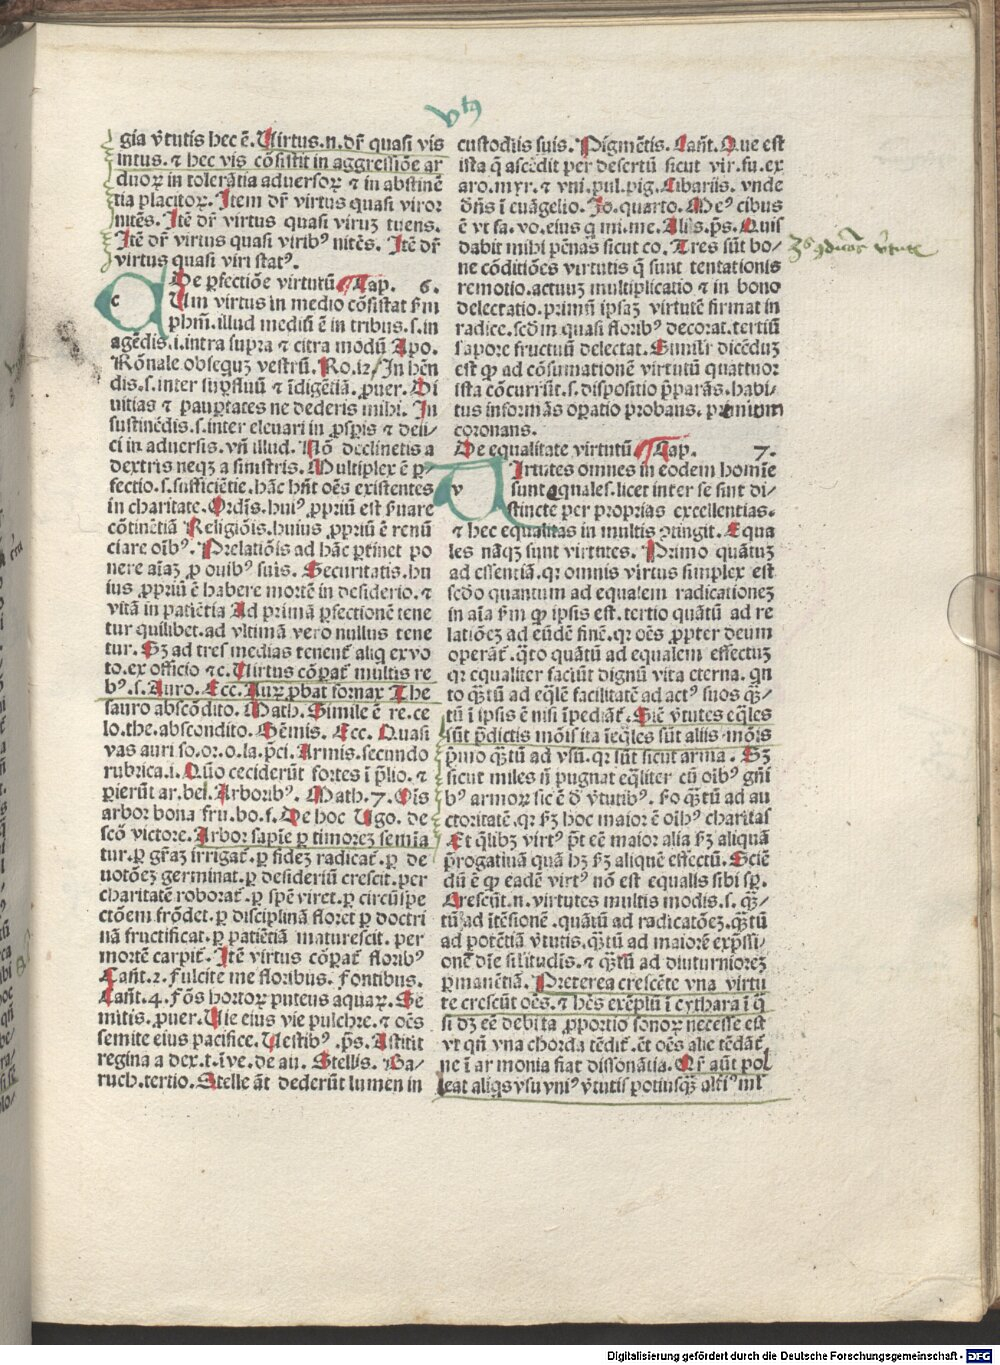 vtꝰ
gia v̄tutis hec ē. Uirtus.n.dr̄ quasi vis
intus. ⁊ hec vis cōsistit in aggressiōe ar
duoꝝ in tolerātia aduersoꝝ ⁊ in abstinē
tia placitoꝝ. Item dr̄ virtus quasi viror
nitēs. Itē dr̄ virtus quasi viruꝫ tuens.
Itē dr̄ virtus quasi viribꝰ nitēs. Itē dr̄
virtus quasi viri statꝰ.
De ꝑfectiōe virtutū ¶ Cap. 6.
c Um virtus in medio cōsistat ẜm
phm̄.illud mediū ē in tribus.s.in
agēdis.i.intra supra ⁊ citra modū Apo.
Rōnale obsequꝫ vestrū. Ro.12/In hēn
dis.s.inter suꝑfluū ⁊ īdigētiā.ꝓuer. Di
uitias ⁊ pauꝑtates ne dederis mihi. In
sustinēdis.s.inter eleuari in ꝓsꝑis ⁊ deij/
ci in aduersis. vn̄ illud. Nō declinetis a
dextris neqꝫ a sinistris. Multiplex ē ꝑ/
fectio.s.sufficiētie.hāc hn̄t oēs existentes
in charitate. Ordīs.huiꝰ ꝓpriū est ẜuare
cōtinētiā Religiōis.huius ꝓpriū ē renū
ciare oībꝰ. Prelatiōis ad hāc ꝑtinet po
nere aīaꝫ ꝓ ouibꝰ suis. Securitatis.hu
ius ꝓpriū ē habere mortē in desiderio. ⁊
vitā in patiētia Ad primā ꝑfectionē tene
tur quilibet.ad vltimā vero nullus tene
tur. Sꝫ ad tres medias tenent̄ aliq̄ ex vo
to.ex officio ⁊c. Uirtus cōꝑat̄ multis re
bꝰ.s.Auro. Ecc. Auꝝ ꝓbat fornax The
sauro abscōdito. Math. Simile ē re.ce
lo.the.abscondito. Gēmis. Ecc. Quasi
vas auri so.or.o.la.p̄ci. Armis.secundo
rubrica.i. Quō ceciderūt fortes ī p̄lio. ⁊
ꝑierūt ar.bel. Arboribꝰ. Math. 7. Oīs
arbor bona fru.bo.f. De hoc Ugo. de
scō victore. Arbor sapīe ꝑ timoreꝫ semīa
tur.ꝑ gr̄aꝫ irrigat̄.ꝑ fideꝫ radicat̄.ꝑ de
uotōeꝫ germinat.ꝑ desideriū crescit.per
charitatē roborat̄.ꝑ spē viret.ꝑ circūspe
ctōem frōdet.ꝑ disciplinā floret ꝑ doctri
nā fructificat.ꝑ patiētiā maturescit. per
mortē carpit̄. Itē virtus cōꝑat̄ floribꝰ
Cant̄.2. Fulcite me floribus. Fontibus.
Cant̄.4. Fōs hortoꝝ puteus aquaꝝ. Se
mitis.ꝓuer. Uie eius vie pulchre. ⁊ oēs
semite eius pacifice. Uestibꝰ .p̄s. Astitit
regina a dex.t.īve.de au. Stellis. Ba/
ruch.tertio. Stelle āt dederūt lumen in
custodiis suis. Pigmētis. Cant̄. Que est
ista q̄ ascēdit per desertū sicut vir.fu.ex
aro.myr. ⁊ vni.pul.pig. Cibariis. vnde
dn̄s ī euāgelio. Jo.quarto. Meꝰ cibus
ē vt fa.vo.eius q̄ mi.me. Alis.p̄s. Quis
dabit mihi pēnas sicut co. Tres sūt bo/
ne cōditiōes virtutis q̄ sunt tentationis
remotio.actuuꝫ multiplicatio ⁊ in bono
delectatio.primū ipsaꝫ virtutē firmat in
radice.scd̄m quasi floribꝰ decorat.tertiū
sapore fructuū delectat. Similr̄ dicēduꝫ
est ꝙ ad cōsumationē virtutū quattuor
ista cōcurrūt.s.dispositio p̄parās.habi/
tus informās oꝑatio probans. premium
coronans.
De equalitate virtutū ¶ Cap. 7.
v Irtutes omnes in eodem homīe
sunt equales.licet inter se sint di/
stincte per proprias excellentias.
⁊ hec equalitas in multis ꝯtingit. Equa
les nāqꝫ sunt virtutes. Primo quātuꝫ
ad essentiā.qr omnis virtus simplex est
scd̄o quantum ad equalem radicationeꝫ
in aīa ẜm ꝙ ipsis est. tertio quātū ad re
latiōeꝫ ad eūdē finē.qr oēs ꝓpter deum
operāt̄.q̄rto quātū ad equalem effectuꝫ
qr equaliter faciūt dignū vita eterna. qn
to qꝫtū ad eq̄lē facilitatē ad actꝰ suos qꝫ/
tū ī ipsis ē nisi īpediāt̄. Sic̄ v̄tutes eq̄les
sūt p̄dictis mōis ita īeq̄les sūt aliis mōis
p̄mo qꝫtū ad vsū.qr sūt sicut arma . Sꝫ
sicut miles nō pugnat eq̄liter cū oībꝰ gn̄i
bꝰ armoꝝ sic ē d̄ v̄tutibꝰ. scd̄o qꝫtū ad au
ctoritatē.qr ẜꝫ hoc maior ē oībꝰ charitas
Et q̄libꝫ virtꝰ pōt eē maior alia ẜꝫ aliquā
p̄rogatiuā quā hꝫ ẜꝫ aliquē effectū. Sciē
dū ē ꝙ eadē virtꝰ nō est equalis sibi sꝑ.
Crescūt.n. virtutes multis modis.s. qꝫ/
tū ad ītēsionē .quātū ad radicatōeꝫ.qꝫtū
ad potētiā v̄tutis.qꝫtū ad maiorē exp̄ssi/
onē diīe sil̄itudīs. ⁊ qꝫtū ad diuturnioreꝫ
ꝑmanētiā. Preterea crescēte vna virtu
te crescūt oēs. ⁊ hēs exēplū ī cythara ī q̄
si dꝫ eē debita ꝓportio sonoꝝ necesse est
vt qn̄ vna chorda tēdit̄.ēt oēs alie tēdāt̄
ne ī armonia fiat dissonātia. Qr̄ aūt pol
leat aliqs vsu vniꝰ v̄tutis potiusqꝫ altīꝰ ml̄